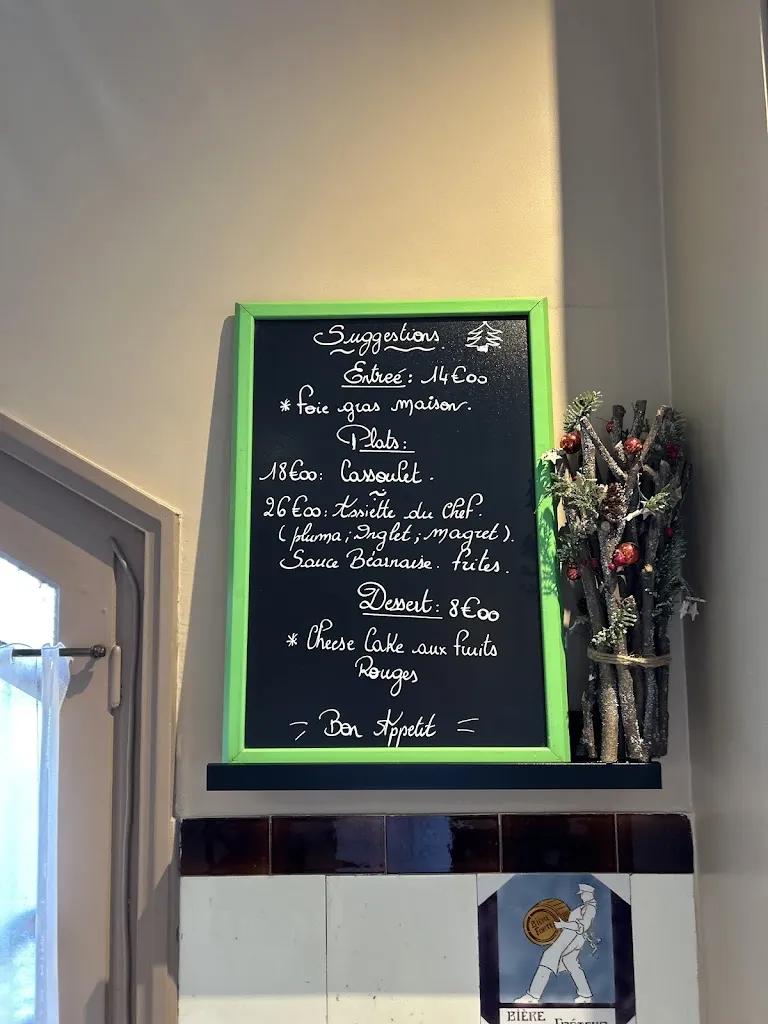 Suggestions
Entreé : 14€00
* foie gras maison.
Plats :
18€00 : Cassoulet.
26€00 : Assiette du Chef.
( pluma ; Onglet ; magret ).
Sauce Béarnaise. frites.
Dessert : 8€00
* Cheese Cake aux fruits
Rouges
Bon Appetit
BIÈRE
FORTE
BIÈRE